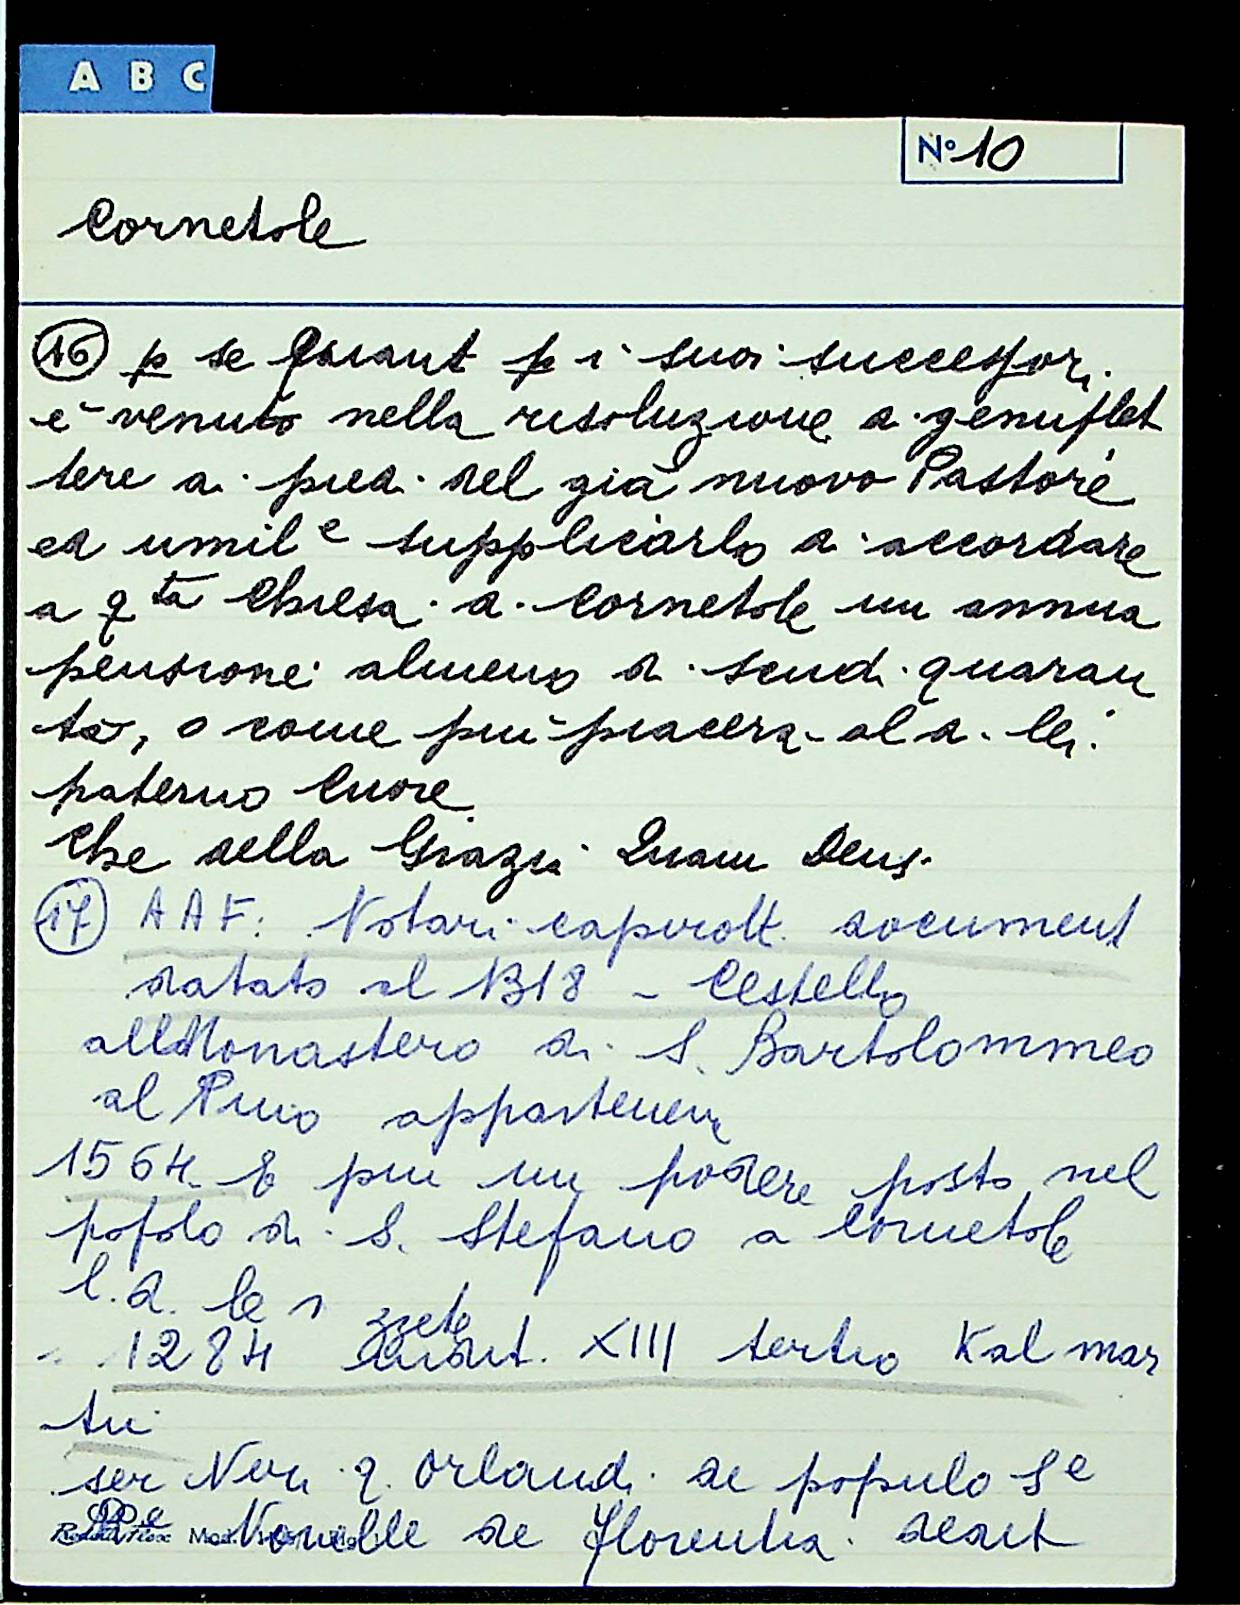 A B C
N° 10
Cornetole
16 p se quant p i suoi successori
e venuto nella risoluzione di genuflet
tere ai piedi del già nuovo Pastore
ed umil e supplicarlo di accordare
a q ta Chiesa di Cornetole un annua
pensione almeno di scudi quaran
ta, o come più piacerà al di lei
paterno Cuore
Che della Grazia Quam Deus
17 AAF: Notari capirott. document
datato al 1318 - Cestello
all Monastero di S. Bartolommeo
al Pino appartenen
1564. E piu un podere posto nel
popolo di S. Stefano a Cornetole
l. d. le
1284 Indict. XIII tertio Kal mar
tii
ser Neri q. Orlandi de populo S e
M e Novelle de Florentia dedit